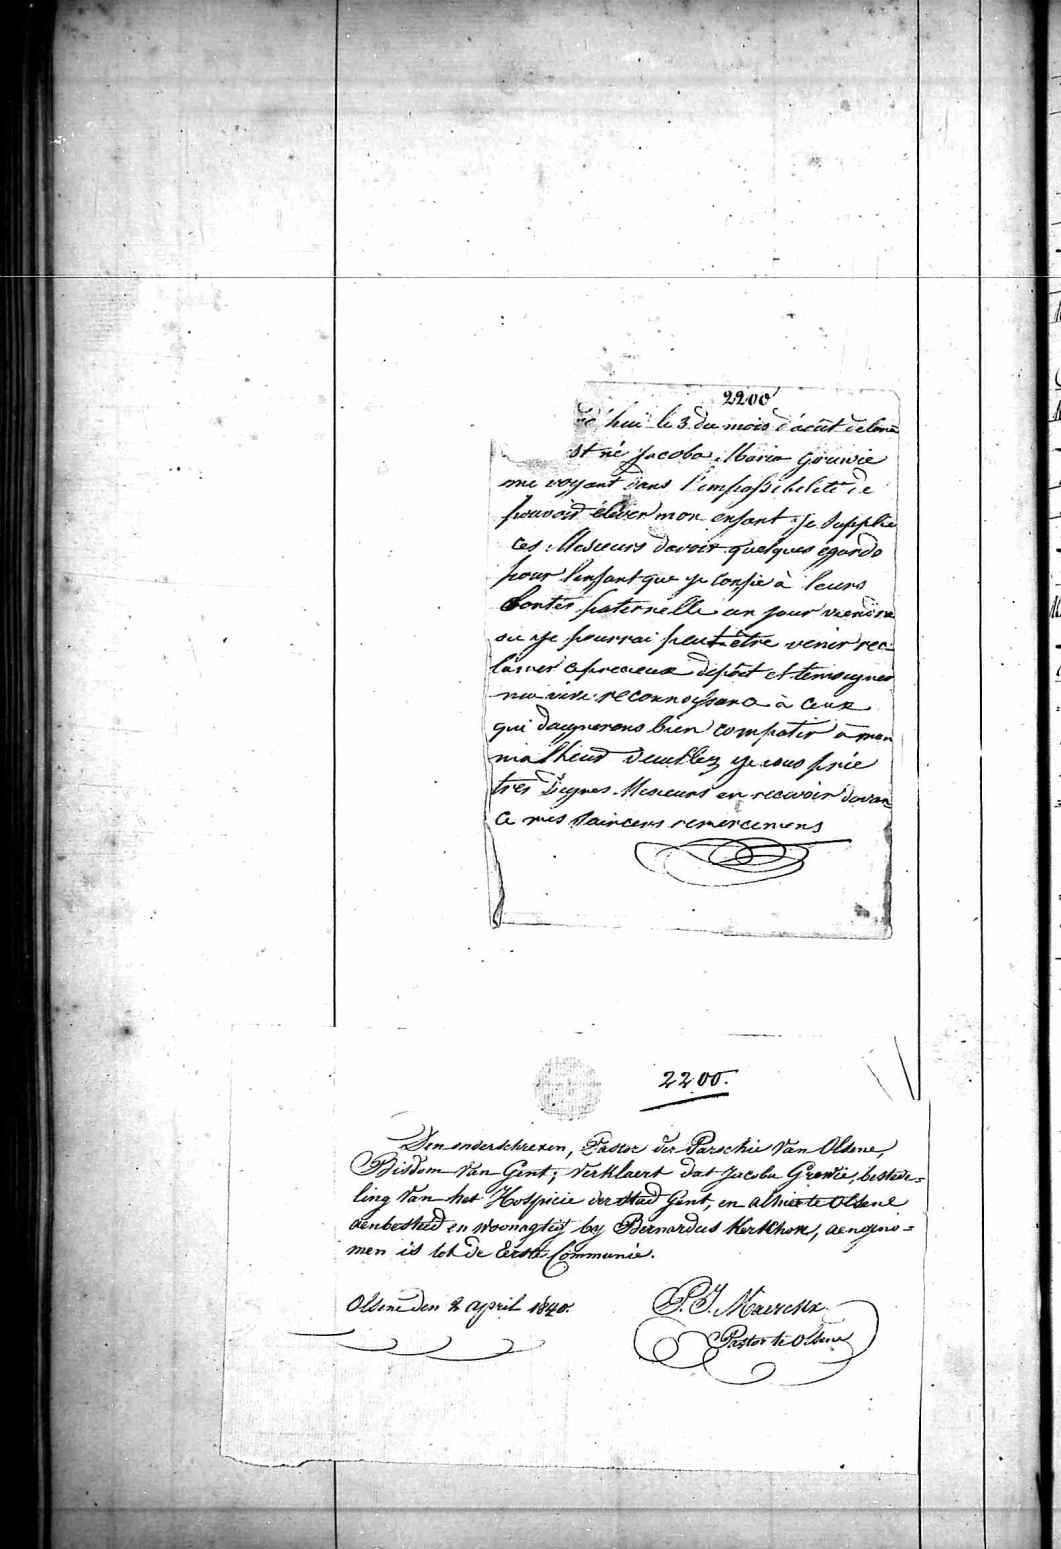 2200
d'hui le 3 du mois d'acût de l'ane
st né Jacoba Maria Gruwie
me voyant dans l'impossibilité de
pouvoir éléver mon enfant je supplie
ces Mesieurs davoir quelques egards
pour l'enfant que je confie à leurs
bontés paternelle un jour viendra
ou je pourrai peut être venir rec
lamer ce precieux dépôt et temoigner
ma vive reconnoissance à ceux
qui daignerons bien compatir à mon
malheur veuillez je vous prie
très dignes Mesieurs en recevoir davan
ce mes sainceres remercimens
2200.
Den onderschreven, Pastor der Parochie van Olsene,
Bisdom van Gent, verklaert dat Jacoba Grewie, bestede=
ling van het Hospicie der stad Gent, en alhier te Olsene
aenbesteed en woonagtig by Bernardus Kerkhove, aengeno=
men is tot de Eerste Communie.
Olsene den 2 april 1840.
P. J. Maerckx
Pastor te Olsene